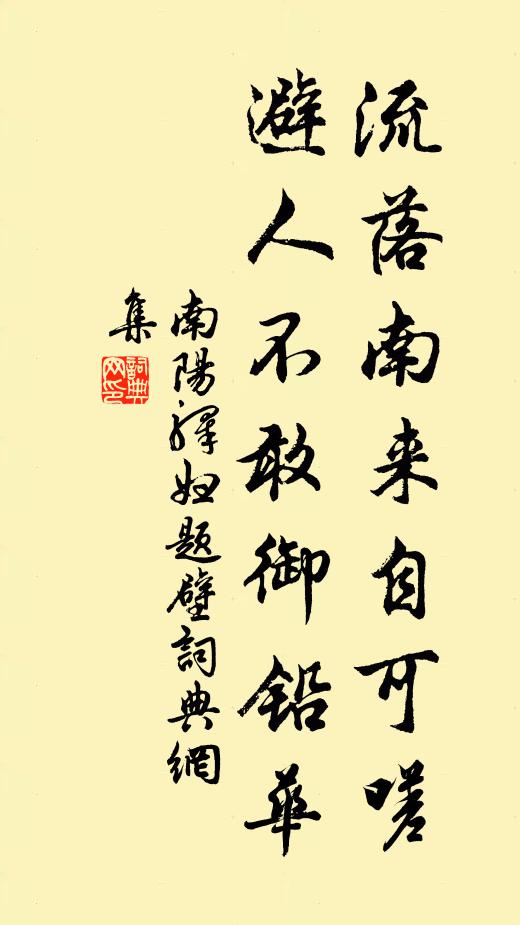 流落南来自可嗟
避人不敢御铅華
南陽驛婦題壁詞典網
集
詞典
网印